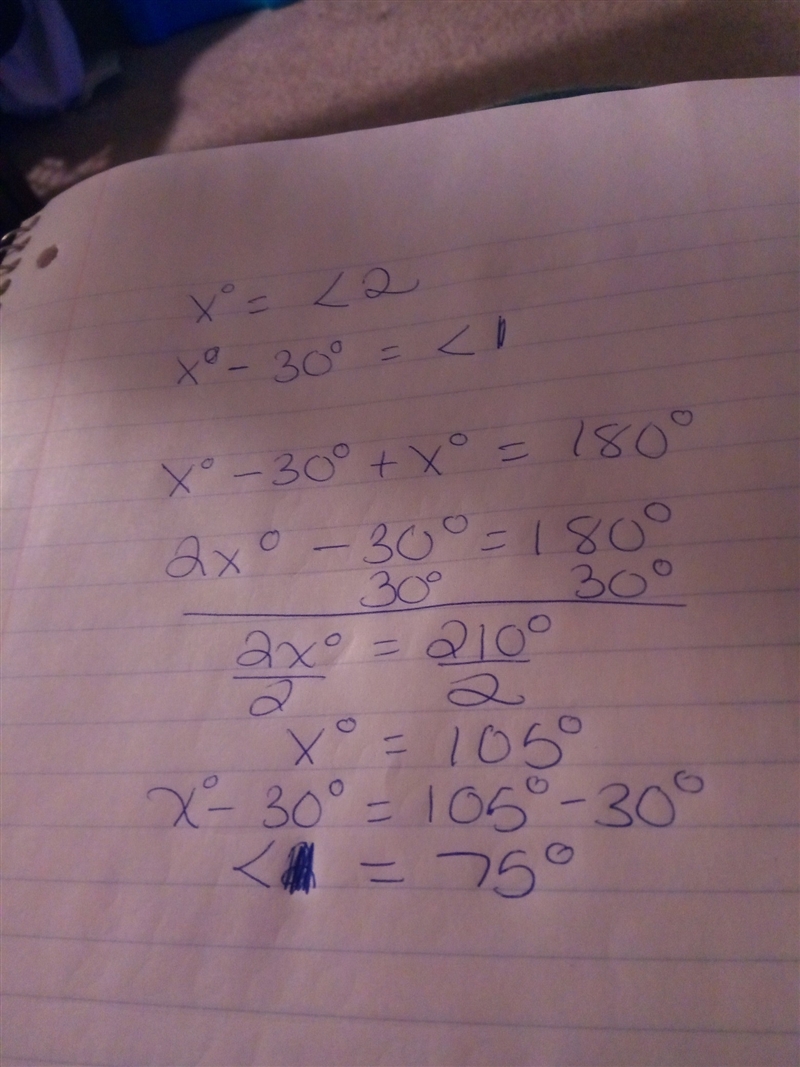 x° = <2
x° - 30° = <1
x° - 30° + x° = 180°
2x° - 30° = 180°
30° 30°
2x° = 210°
2 2
x° = 105°
x° - 30° = 105° - 30°
< = 75°